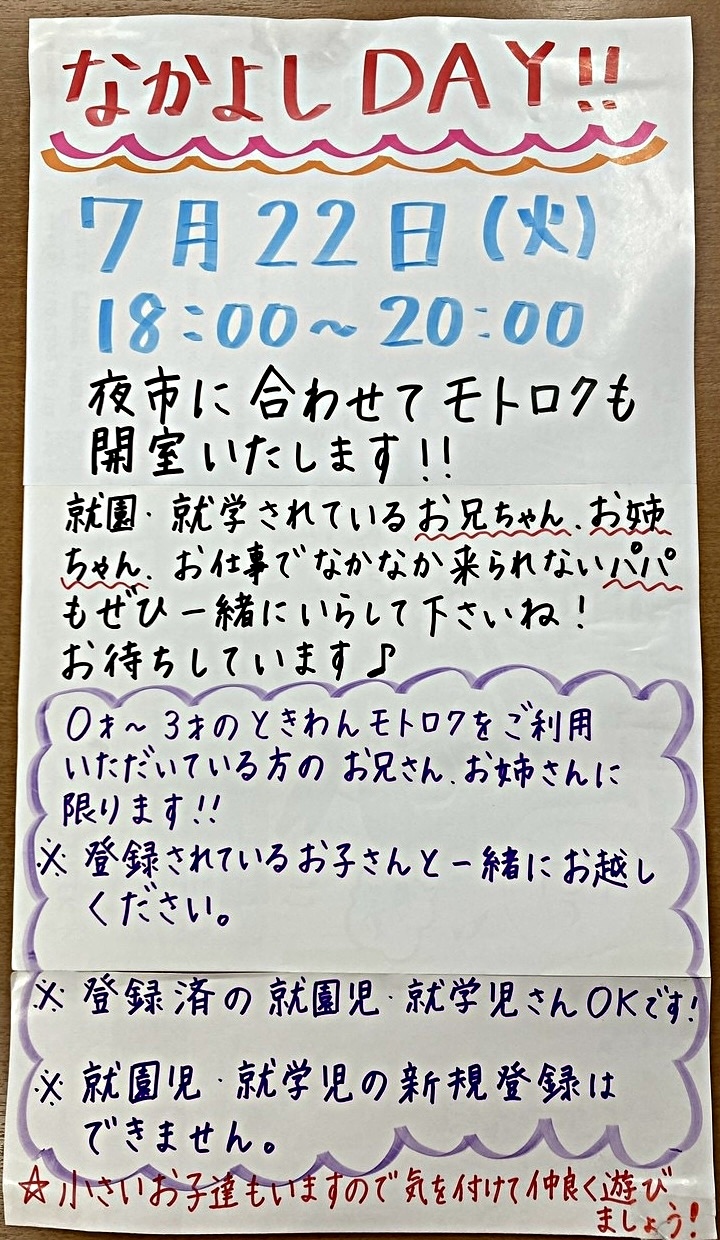 なかよしDAY!!
7月22日(火)
18:00~20:00
夜市に合わせてモトロクも
開室いたします!!
就園・就学されているお兄ちゃん、お姉
ちゃん、お仕事でなかなか来られないパパ
もぜひ一緒にいらして下さいね!
お待ちしています♪
0才~3才のときわんモトロクをご利用
いただいている方のお兄さん、お姉さんに
限ります!!
※登録されているお子さんと一緒にお越し
ください。
※登録済の就園児・就学児さんOKです!
※就園児・就学児の新規登録は
できません。
☆小さいお子達もいますので気を付けて仲良く遊び
ましょう!